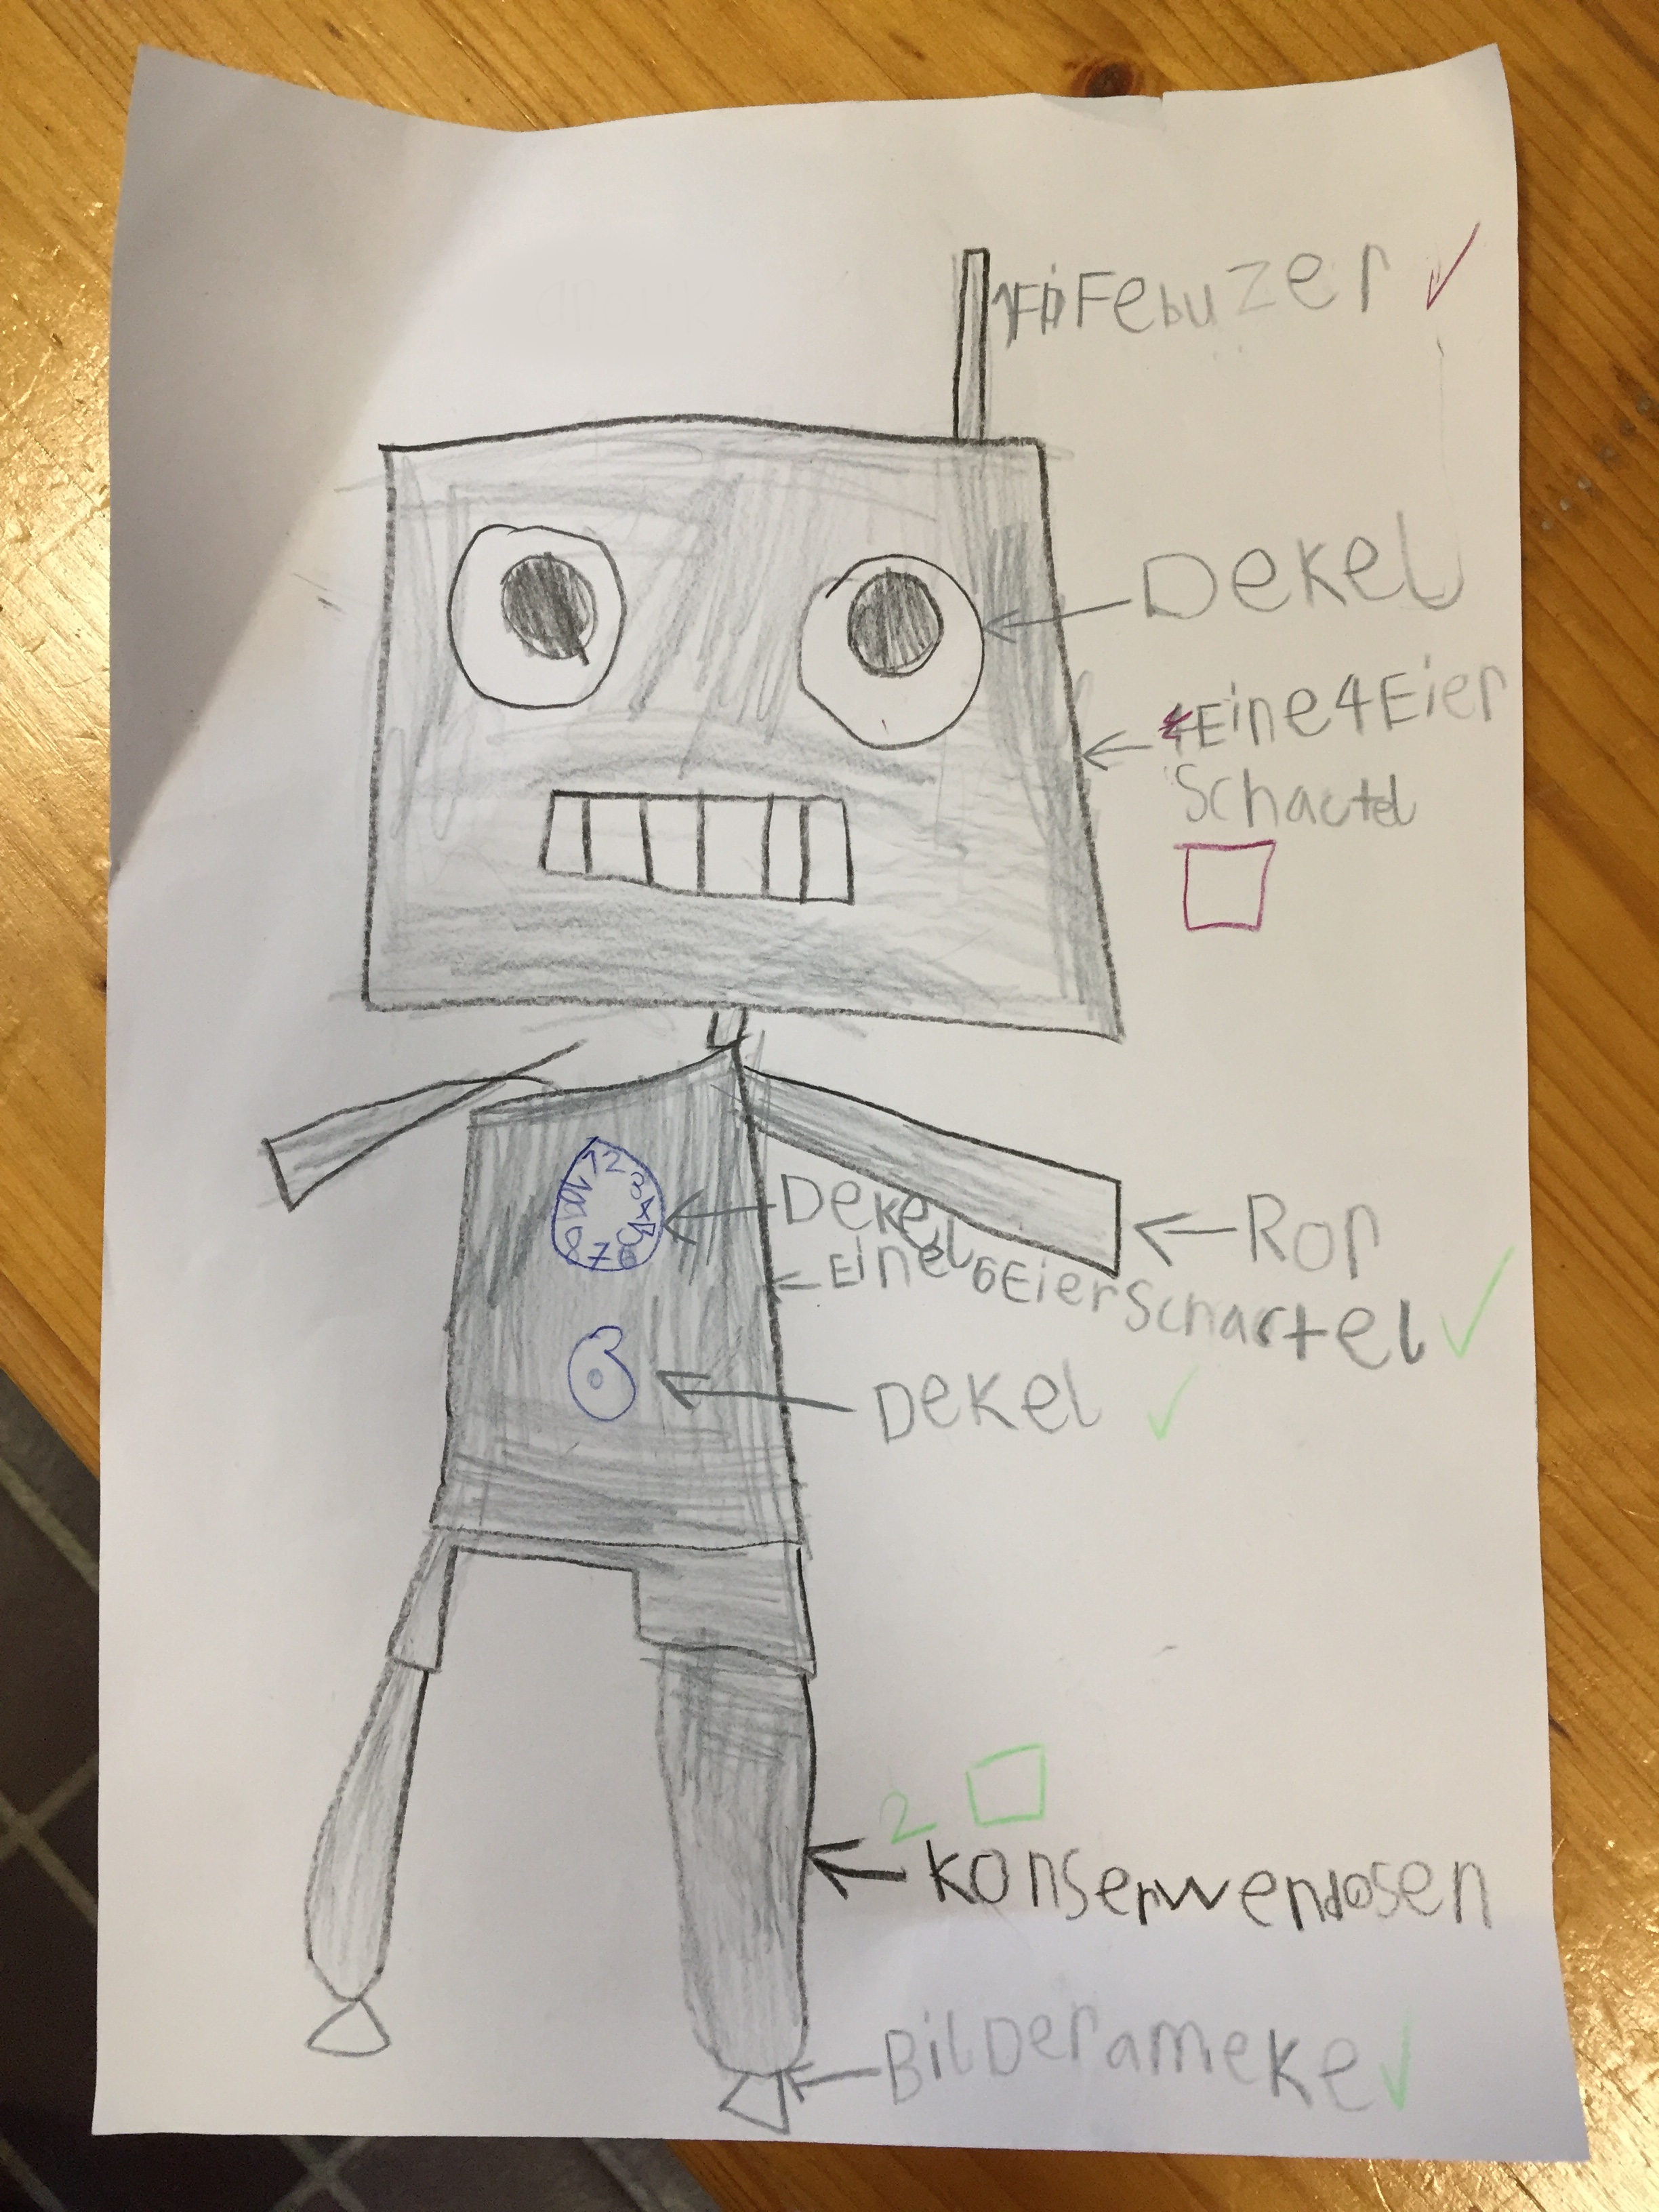 FifeBuzer
Dekel
Eine 4 Eier
Schactel
Dekel
Ror
Eine 6 Eier Schartel
Dekel
2
Konserwendosen
BilDerameke